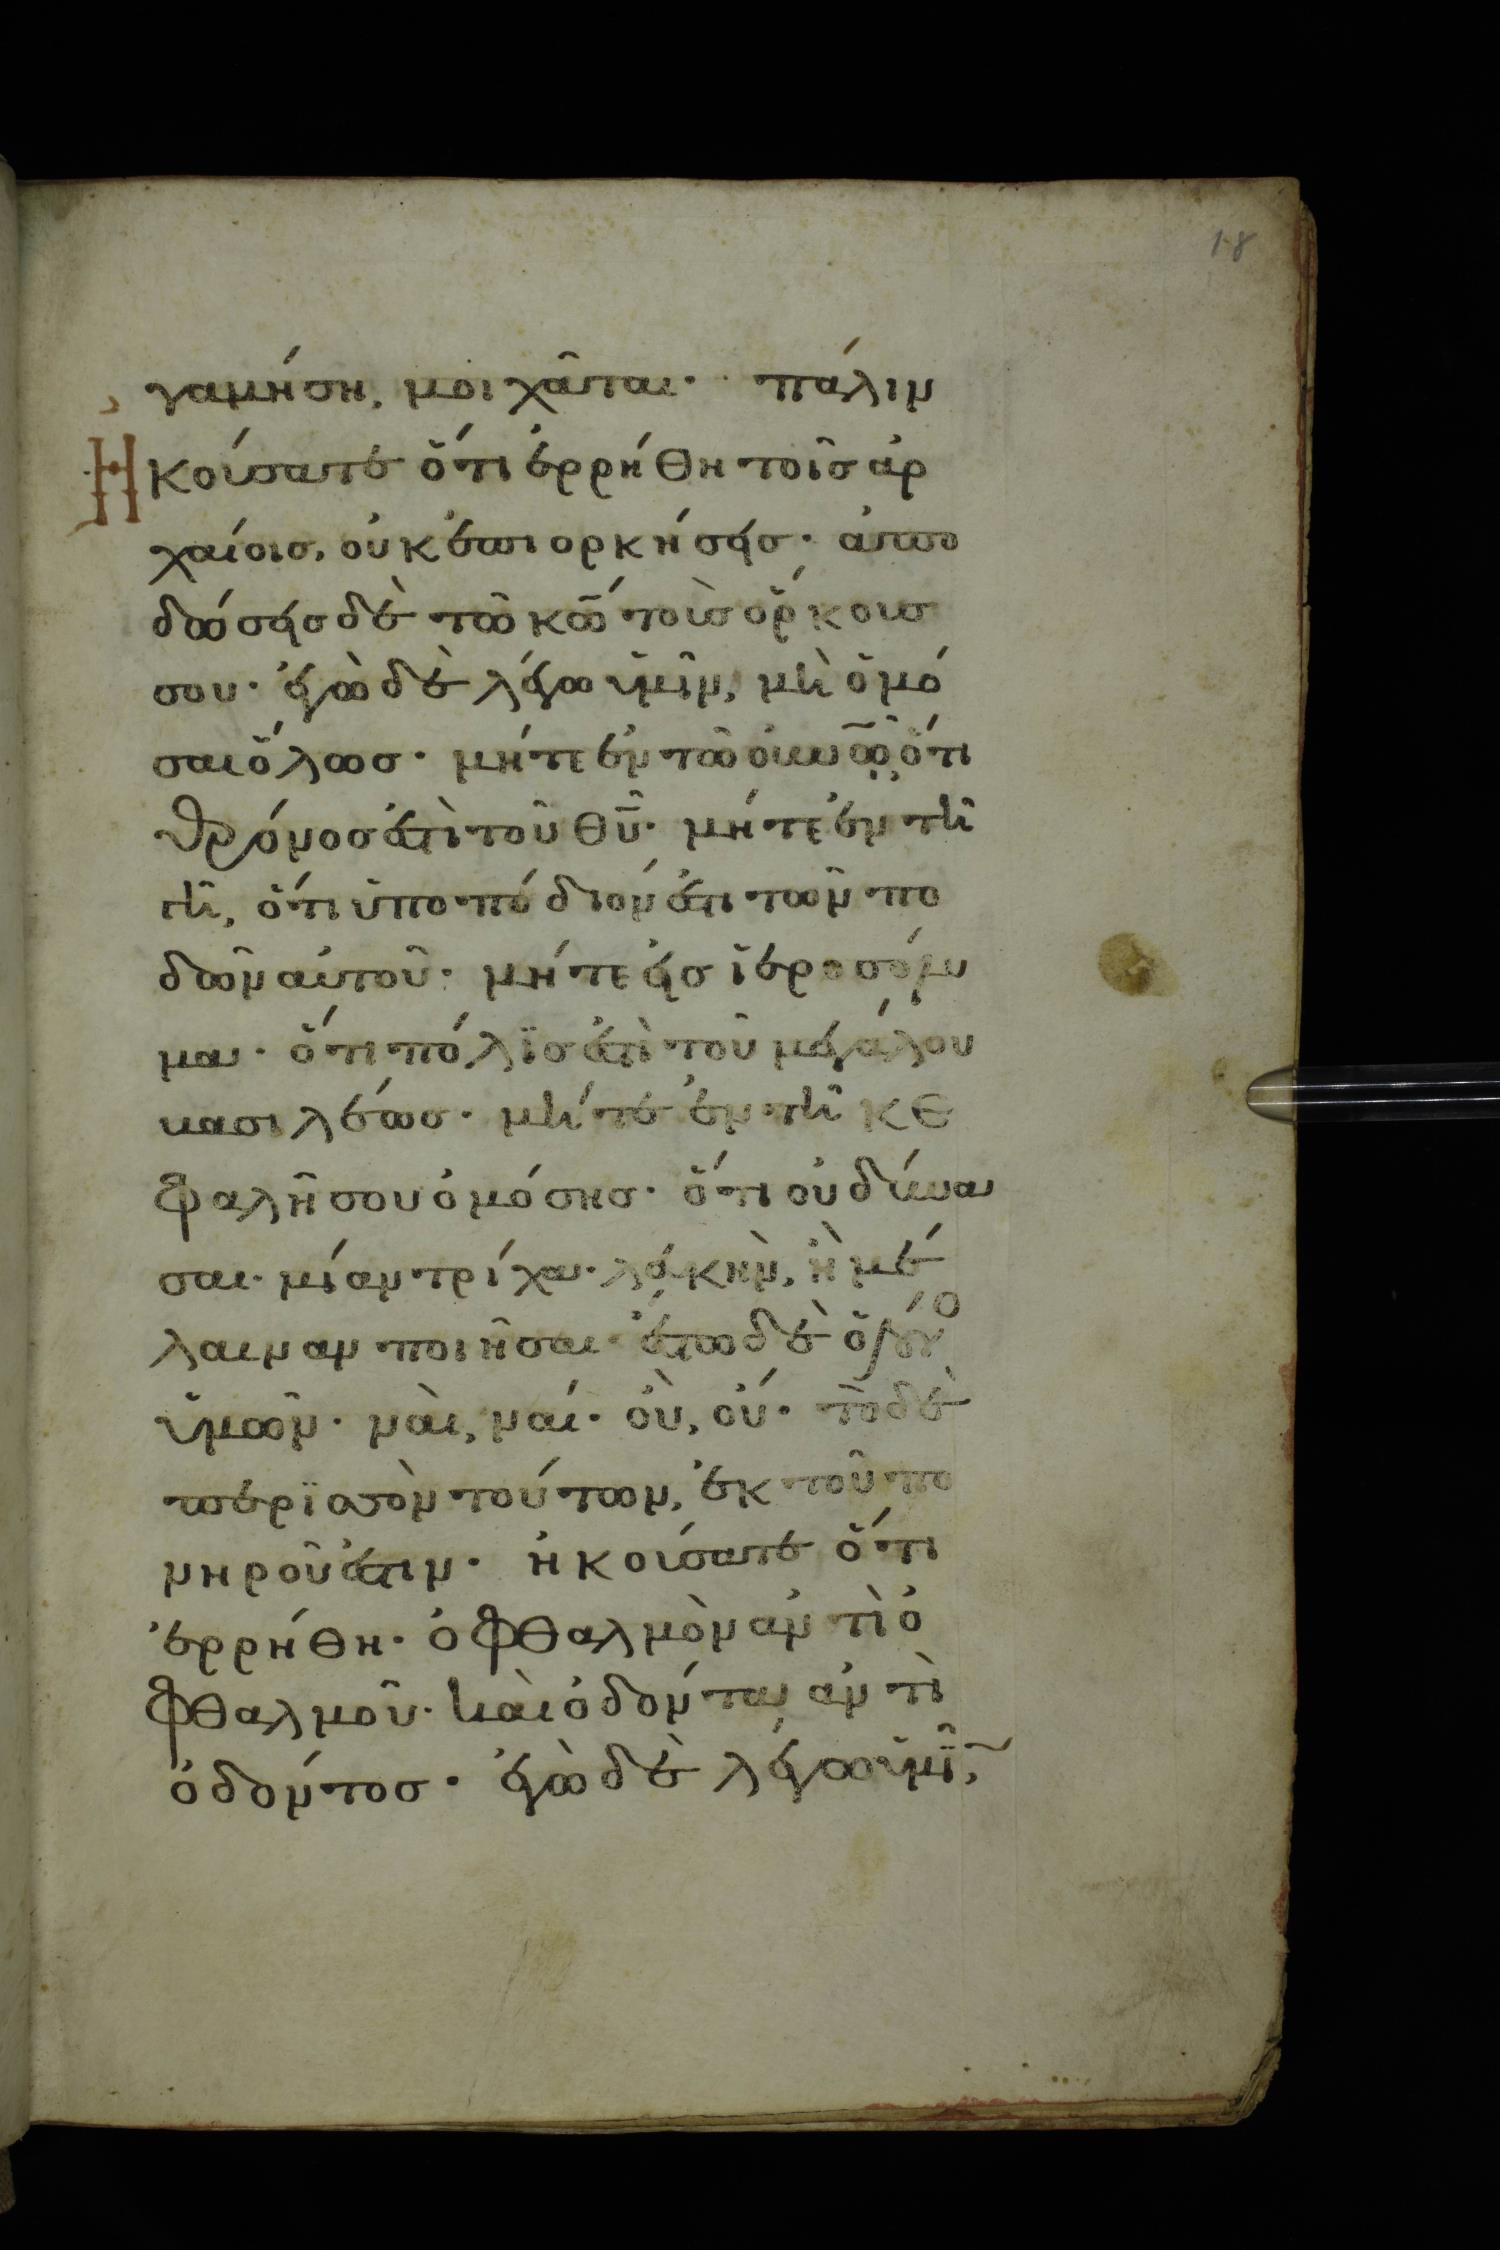 18
γαμήση, μοιχᾶται· πάλιν
Ἠκούσατε ὅτι ἐρρήθη τοῖς ἀρ
χαίοις, οὐκ ἐπιορκήσεις· ἀπο
δώσεις δὲ τῶ κ̅ω̅ τοὺς ὅρκους
σου· ἐγὼ δὲ λέγω ὑμῖν, μὴ ὀμό
σαι ὅλως· μήτε ἐν τῶ οὐνῶ, ὅτι
θρόνος ἐστὶ τοῦ θ̅υ̅· μήτε ἐν τῆ
γῆ, ὅτι ὑποπόδιόν ἐστι τῶν πο
δῶν αὐτοῦ· μήτε εἰς ϊεροσόλυ
μα· ὅτι πόλϊς ἐστὶ τοῦ μεγάλου
βασιλέως· μήτε ἐν τῆ κε
φαλῆ σου ὀμόσης· ὅτι οὐ δύνα
σαι· μίαν τρίχα· λευκὴν, ἢ μέ
λαιναν ποιῆσαι· ἔστω δὲ ὁ λόγο
ὑμῶν· ναὶ, ναί· οὒ, οὔ· τὸ δὲ
περϊσσὸν τούτων, ἐκ τοῦ πο
νηροῦ ἐστιν· ἠκούσατε ὅτι
ἐρρήθη· ὀφθαλμὸν ἀντὶ ὀ
φθαλμοῦ· καὶ ὀδόντα ἀντὶ
ὀδόντος· ἐγὼ δὲ λέγω ὑμῖ,